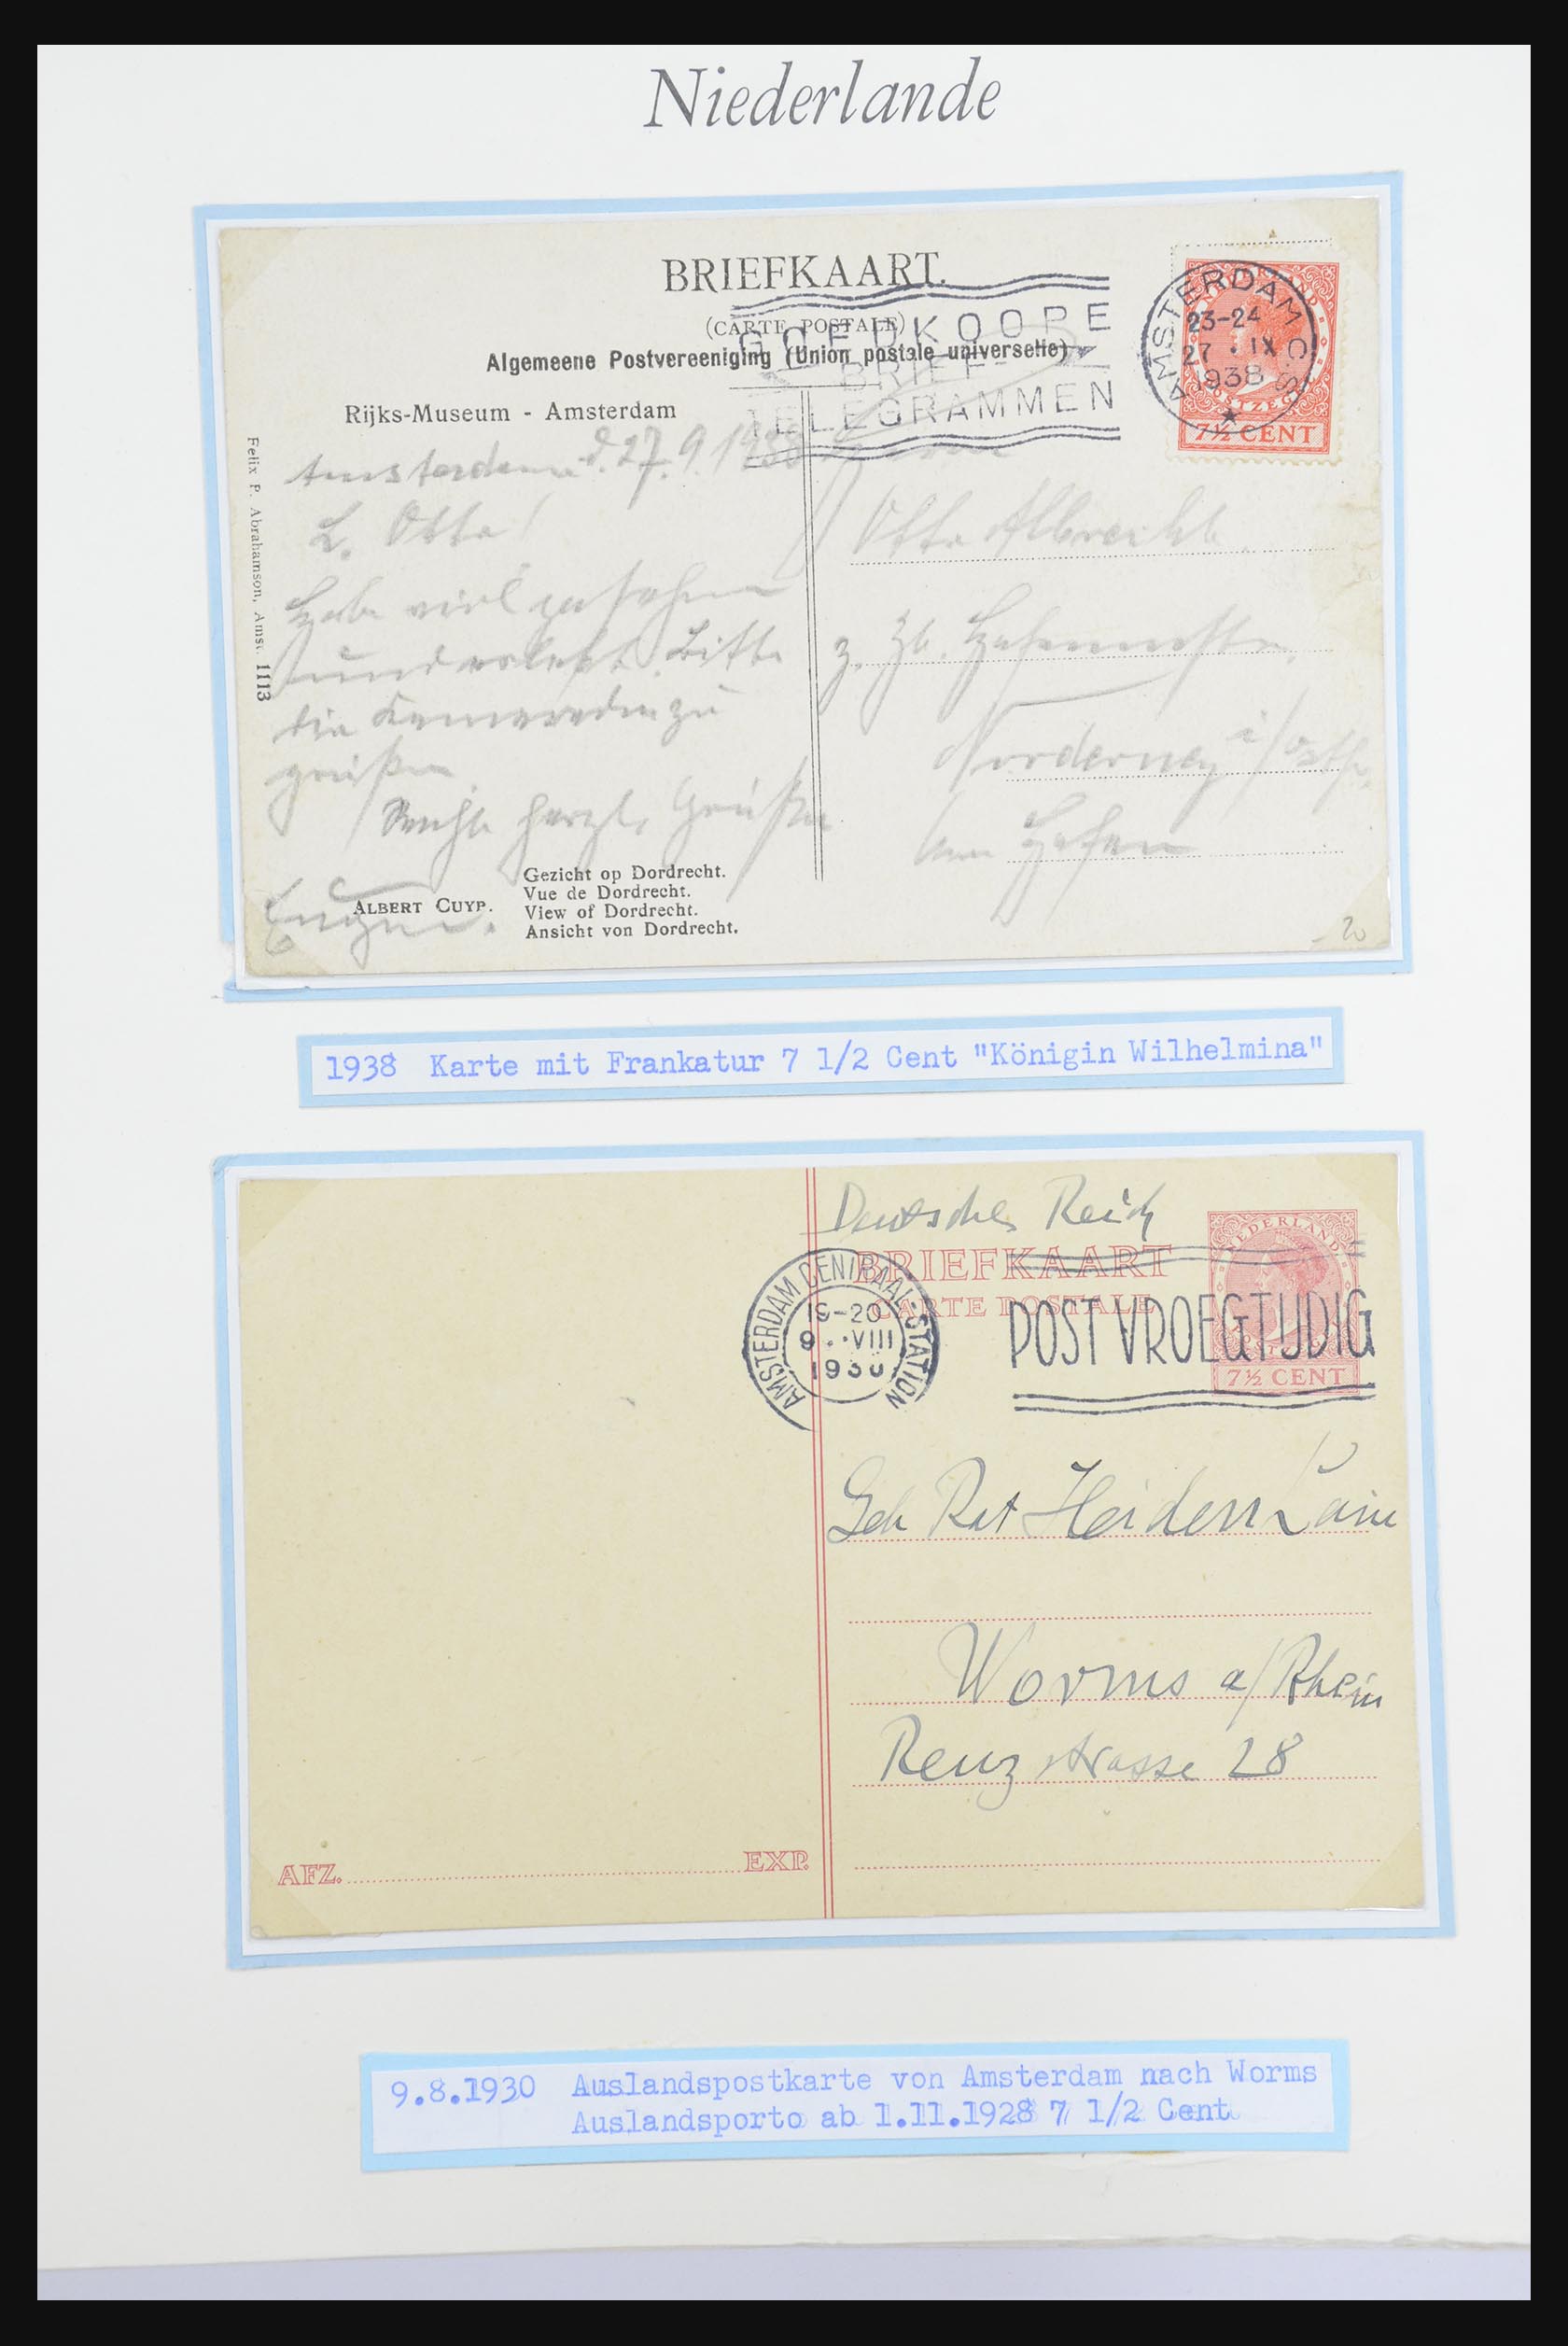 Niederlande
BRIEFKAART.
(CARTE POSTALE)
Algemeene Postvereeniging (Union postale universelle)
GOEDKOOPE
BRIEF-
TELEGRAMMEN
AMSTERDAM C.S.
23-24
27 · IX
1938
POSTZEGEL
7½ CENT
Rijks-Museum - Amsterdam
Felix P. Abrahamson, Amst. 1113
Amsterdam d. 27.9.1938
L. Otto!
Habe viel gesehen
und erlebt. Bitte
die Kameraden zu
grüßen.
Recht herzl. Grüße
Eugen.
Otto Albrecht
z. Zt.
Norderney i/Ostfr.
Am Hafen
ALBERT CUYP.
Gezicht op Dordrecht.
Vue de Dordrecht.
View of Dordrecht.
Ansicht von Dordrecht.
20
1938 Karte mit Frankatur 7 1/2 Cent "Königin Wilhelmina"
Deutsches Reich
BRIEFKAART
CARTE POSTALE
NEDERLAND
7½ CENT
AMSTERDAM CENTRAAL-STATION
19-20
9 · VIII
1930
POST VROEGTIJDIG
Geh Rat Heiden
Worms a/Rhein
Renzstrasse 28
AFZ. EXP.
9.8.1930 Auslandspostkarte von Amsterdam nach Worms
Auslandsporto ab 1.11.1928 7 1/2 Cent